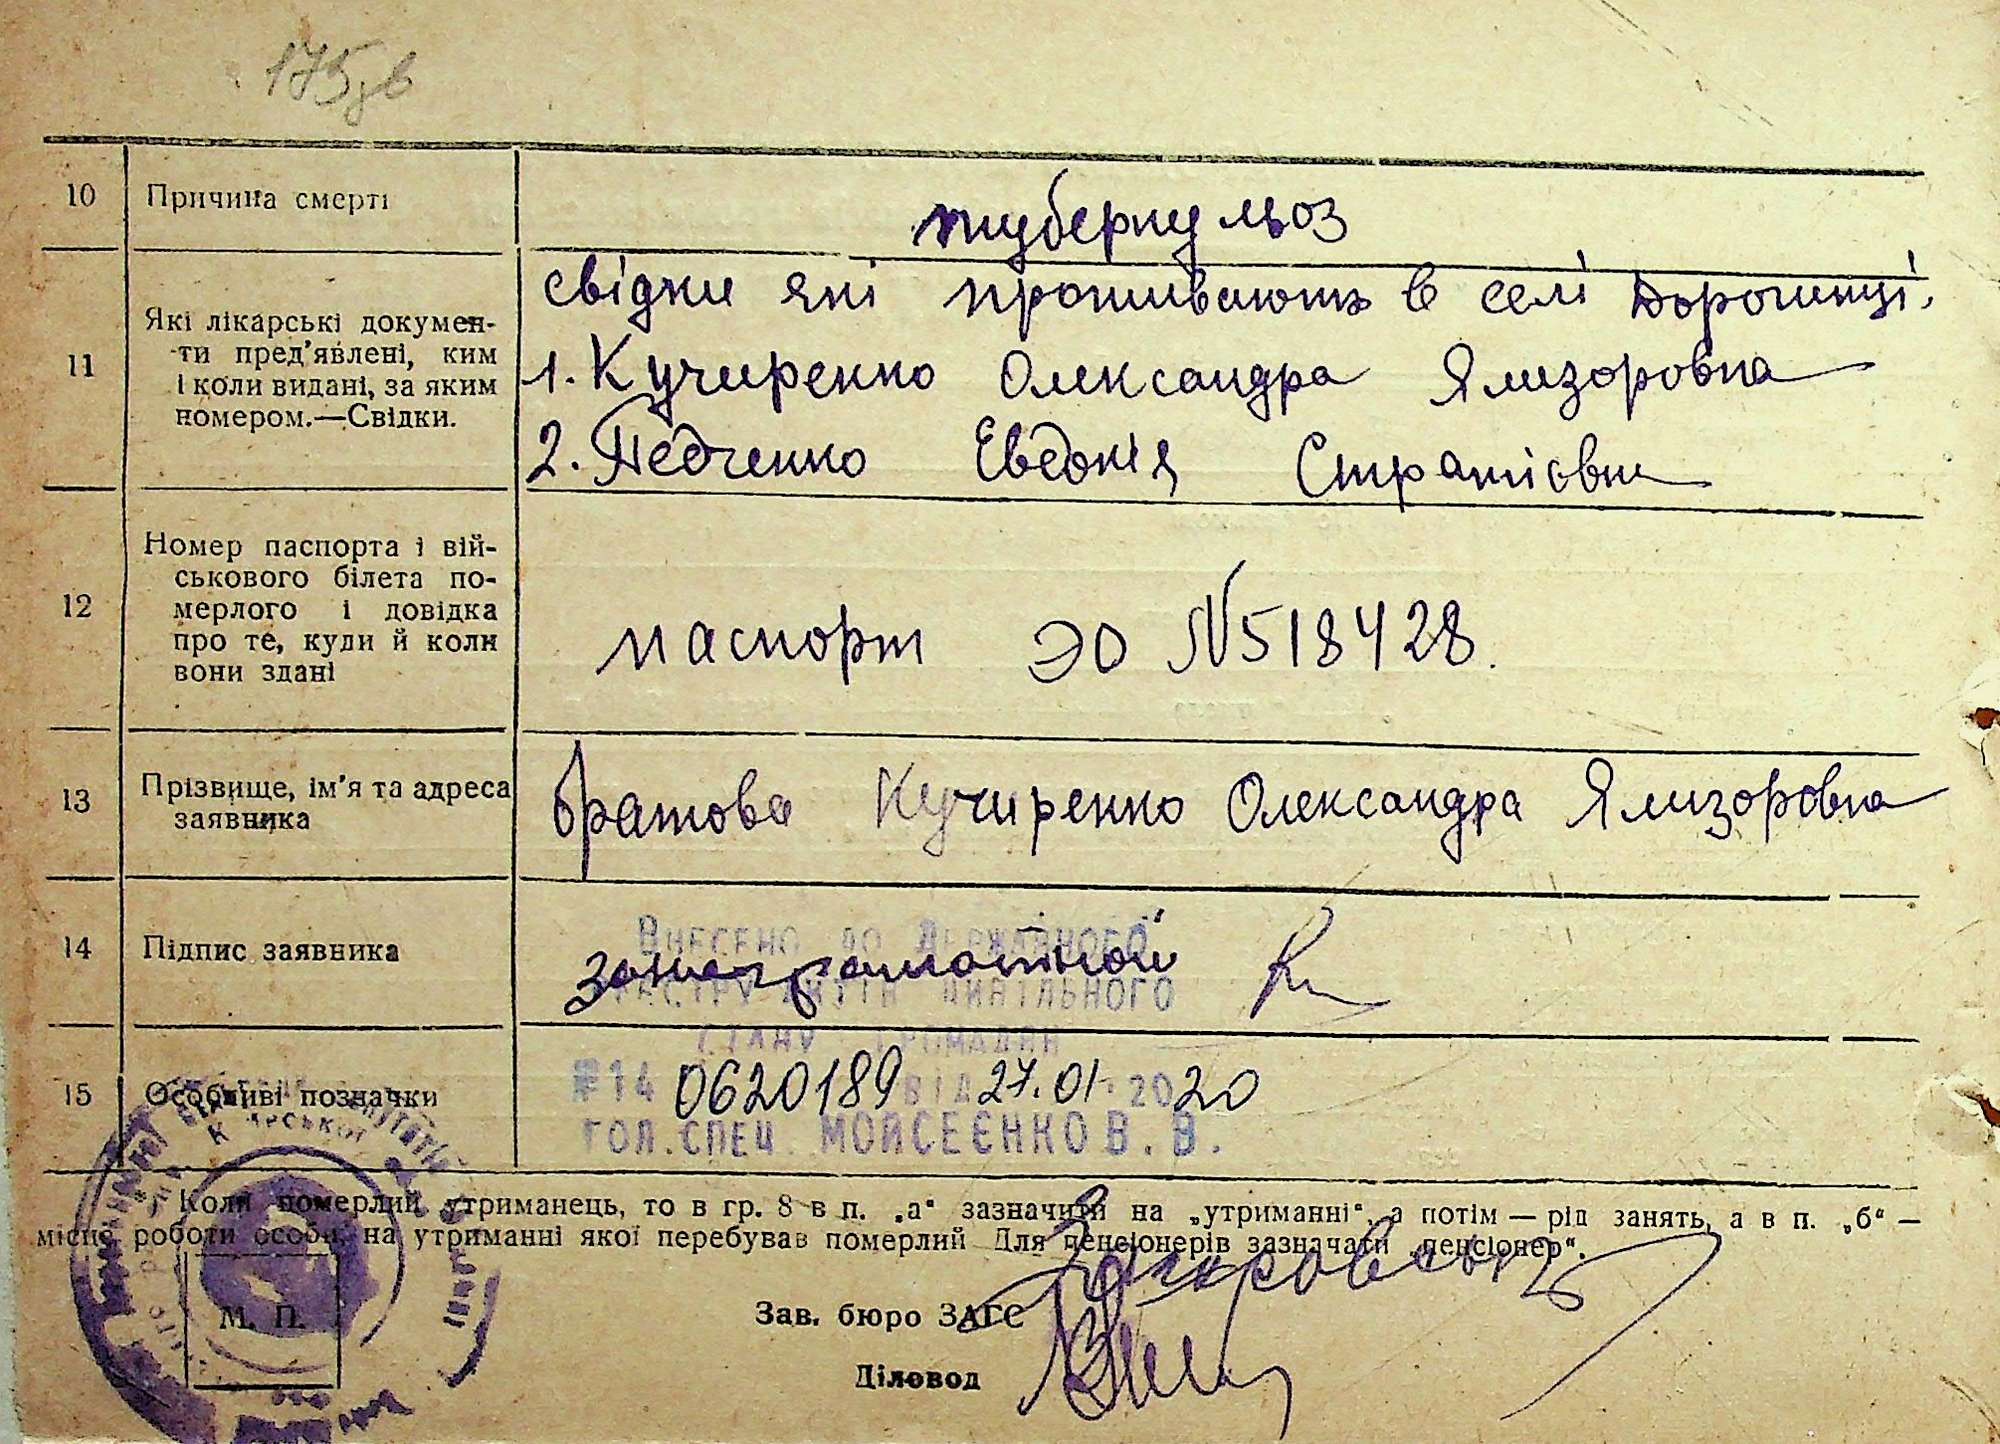 175зв
10 Причина смерті туберкульоз
11 Які лікарські докумен-
ти пред'явлені, ким
і коли видані, за яким
номером.—Свідки.
свідки які проживають в селі Дорогинці.
1. Кучиренко Олександра Ялизоровна
2. Педченко Евдокія
12 Номер паспорта і вій-
ськового білета по-
мерлого і довідка
про те, куди й коли
вони здані
паспорт ЭО N518428.
13 Прізвище, ім'я та адреса
заявника
братова Кучиренко Олександра Ялизоровна
14 Підпис заявника
Внесено до Державного
реєстру актів цивільного
стану громадян
15 Особливі позначки
№14 0620189 від 27.01.2020
гол. спец. Мойсеєнко В. В.
*) Коли померлий утриманець, то в гр. 8 в п. „а“ зазначити на „утриманні“, а потім — рід занять, а в п. „б“ —
місце роботи особи, на утриманні якої перебував померлий Для пенсіонерів зазначати „пенсіонер“.
М. П.
Зав. бюро ЗАГС
Діловод